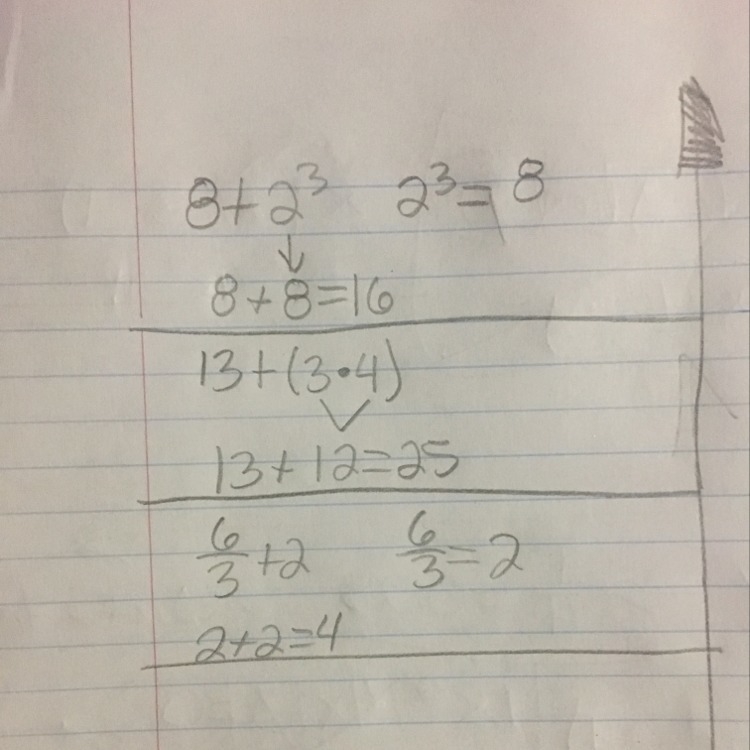 8+2³ 2³=8
↓
8+8=16
13+(3•4)
13+12=25
6/3+2 6/3=2
2+2=4